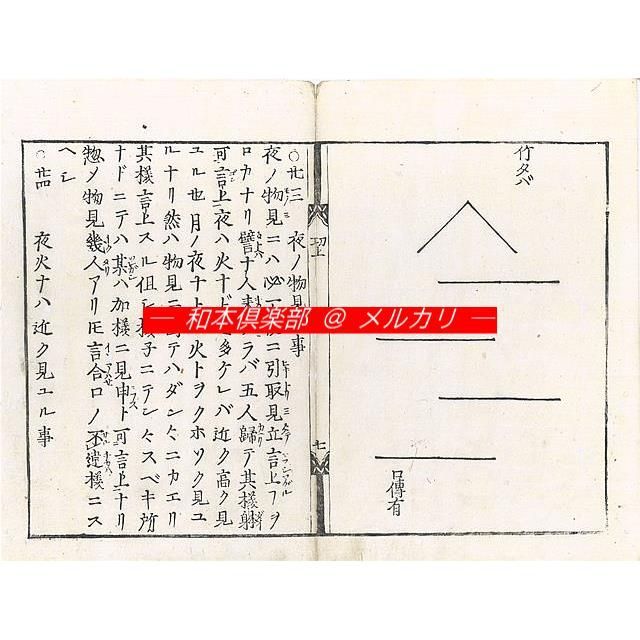 竹タバ
口傳有
七
○廿三 夜ノ物見 事
夜ノ物見ニハ必 ニ引取見立言上フヲ
ロカナリ譬十人 ラバ五人歸テ其様躰
可言上夜ハ火ナド 多ケレバ近ク高ク見
ユル也月ノ夜ナト 火トヲクホソク見ユ
ルナリ然ハ物見ニ テハダン〻ニカエリ
其様言上スル但シ 子ニテ スベキ所
ナドニテハ某ハ加様ニ見申ト可言上ナリ
惣〆物見幾人アリ𪜈言合ロノ不違様ニス
ヘシ
○廿四 夜火ナハ近ク見ユル事
— 和本倶楽部 @ メルカリ —